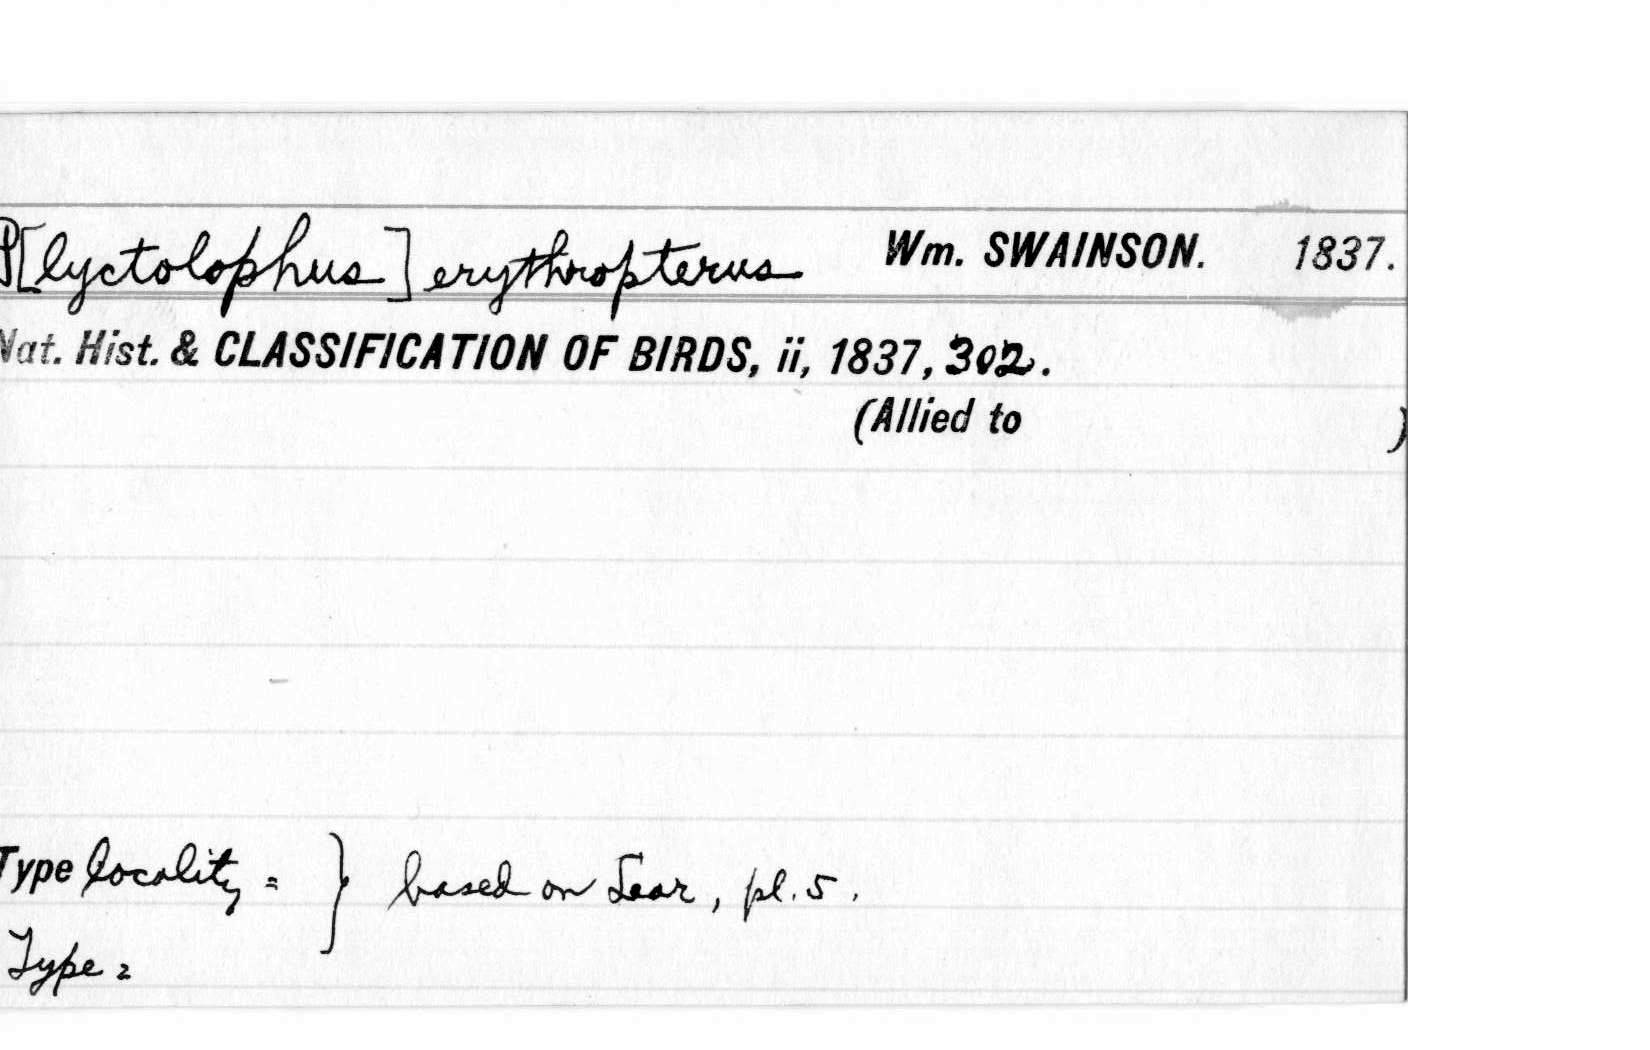 P[lyctolophus] erythropterus Wm. SWAINSON. 1837.
Nat. Hist. & CLASSIFICATION OF BIRDS, ii, 1837, 302.
(Allied to )
Type locality = } based on Lear, pl. 5.
Type =